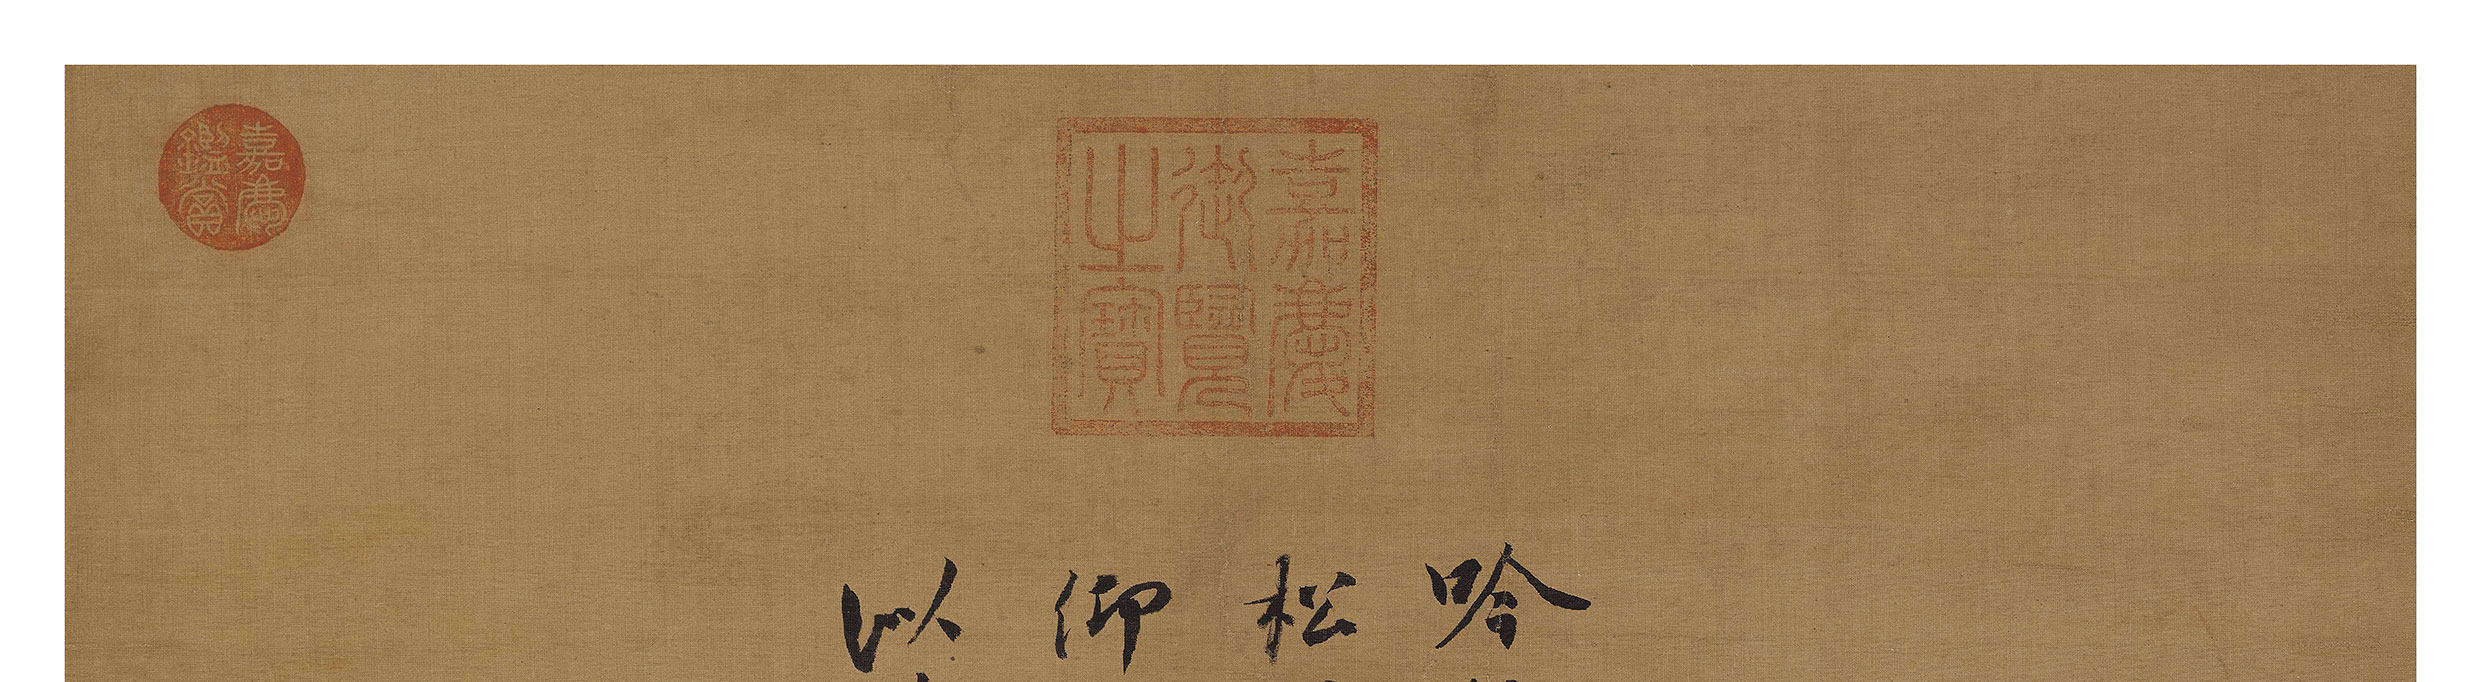 嘉慶
御覽
之寶
吟
松
仰
以
嘉慶
鑑賞